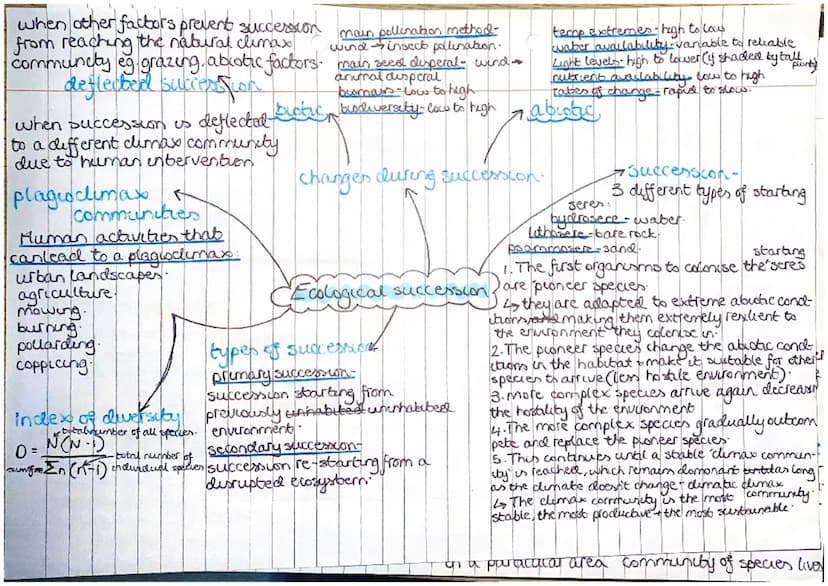 when other factors prevent succession
from reaching the natural climax
community eg. grazing, abiotic factors.
deflected succession
when succession is deflected
to a different climax community
due to human intervention
plagioclimax
communities
Human activities that
can lead to a plagioclimax:
urban landscapes.
agriculture.
mowing.
burning.
pollarding.
coppicing.
index of diversity
total number of all species.
D = N(N-1)
Σn(n-1)
total number of
individual species
main pollination method-
wind → insect pollination.
main seed disperal- wind →
animal disperal
biomass- low to high
biodiversity- low to high
biotic
temp extremes- high to low
water availability- variable to reliable
light levels- high to lower (if shaded by tall
plants)
nutrient availability- low to high
rates of change- rapid to slow.
abiotic
changes during succession.
Ecological succession
types of succession
primary succession-
succession starting from
previously uninhabited
environment.
secondary succession-
succession re-starting from a
disrupted ecosystem.
succession-
3 different types of starting
seres:
hydrosere- water.
lithosere- bare rock.
psammosere- sand.
starting
1. The first organisms to colonise the seres
are pioneer species.
↳ they are adapted to extreme abiotic cond-
itions making them extremely reslient to
the environment they colonise in.
2. The pioneer species change the abiotic cond-
itions in the habitat + make it suitable for other
species to arrive (less hostile environment).
3. more complex species arrive again decreasi
the hostility of the environment
4. The more complex species gradually outcom
pete and replace the pioneer species.
5. This continues until a stable 'climax commun-
ity' is reached, which remains domonant as long
as the climate doesn't change - climatic climax
community.
↳ The climax community is the most
stable, the most productive + the most sustainable.
in a particular area community of species lives